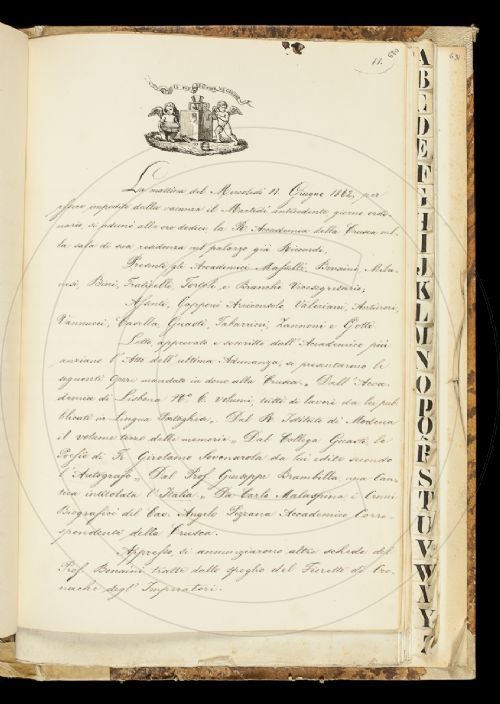 11.
630
631
La mattina del Mercoledì 11 Giugno 1862, per
essere impedito dalla vacanza il Martedì antecedente giorno ordi-
nario, si adunò alle ore dodici la R. Accademia della Crusca nel-
la sala di sua residenza nel palazzo già Riccardi.
Presenti gli Accademici Maffei, Bonaini, Mila-
nesi, Bini, Fraticelli, Tortoli, e Bianchi Vicesegretario;
Assenti, Capponi Arciconsolo Valeriani, Antinori,
Vannucci, Casella, Guasti, Tabarrini, Zannoni e Gotti.
Letto, approvato e soscritto dall' Accademico più
anziano l'Atto dell'ultima Adunanza, si presentarono le
seguenti Opere mandate in dono alla Crusca. „ Dall' Acca-
demia di Lisbona N.° 6. volumi, tutti di lavori da lei pub-
blicati in Lingua Portoghese „ Dal R. Istituto di Modena
il volume terzo delle memorie „ Dal Collega Guasti, le
Poesie di Fr. Girolamo Savonarola da lui edite secondo
l'Autografo „ Dal Prof. Giuseppe Brambilla una Can-
tica intitolata l'Italia „ Da Carlo Malaspina i Cenni
Biografici del Cav. Angelo Pezzana Accademico Corri-
spondente della Crusca.
Appresso, si annunziarono altre schede del
Prof. Bonaini, tratte dallo spoglio del Fioretti di Cro-
nache degl' Imperatori.
A
B
C
D
E
F
G
H
I
J
K
L
M
N
O
P
Q
R
S
T
U
V
W
X
Y
Z